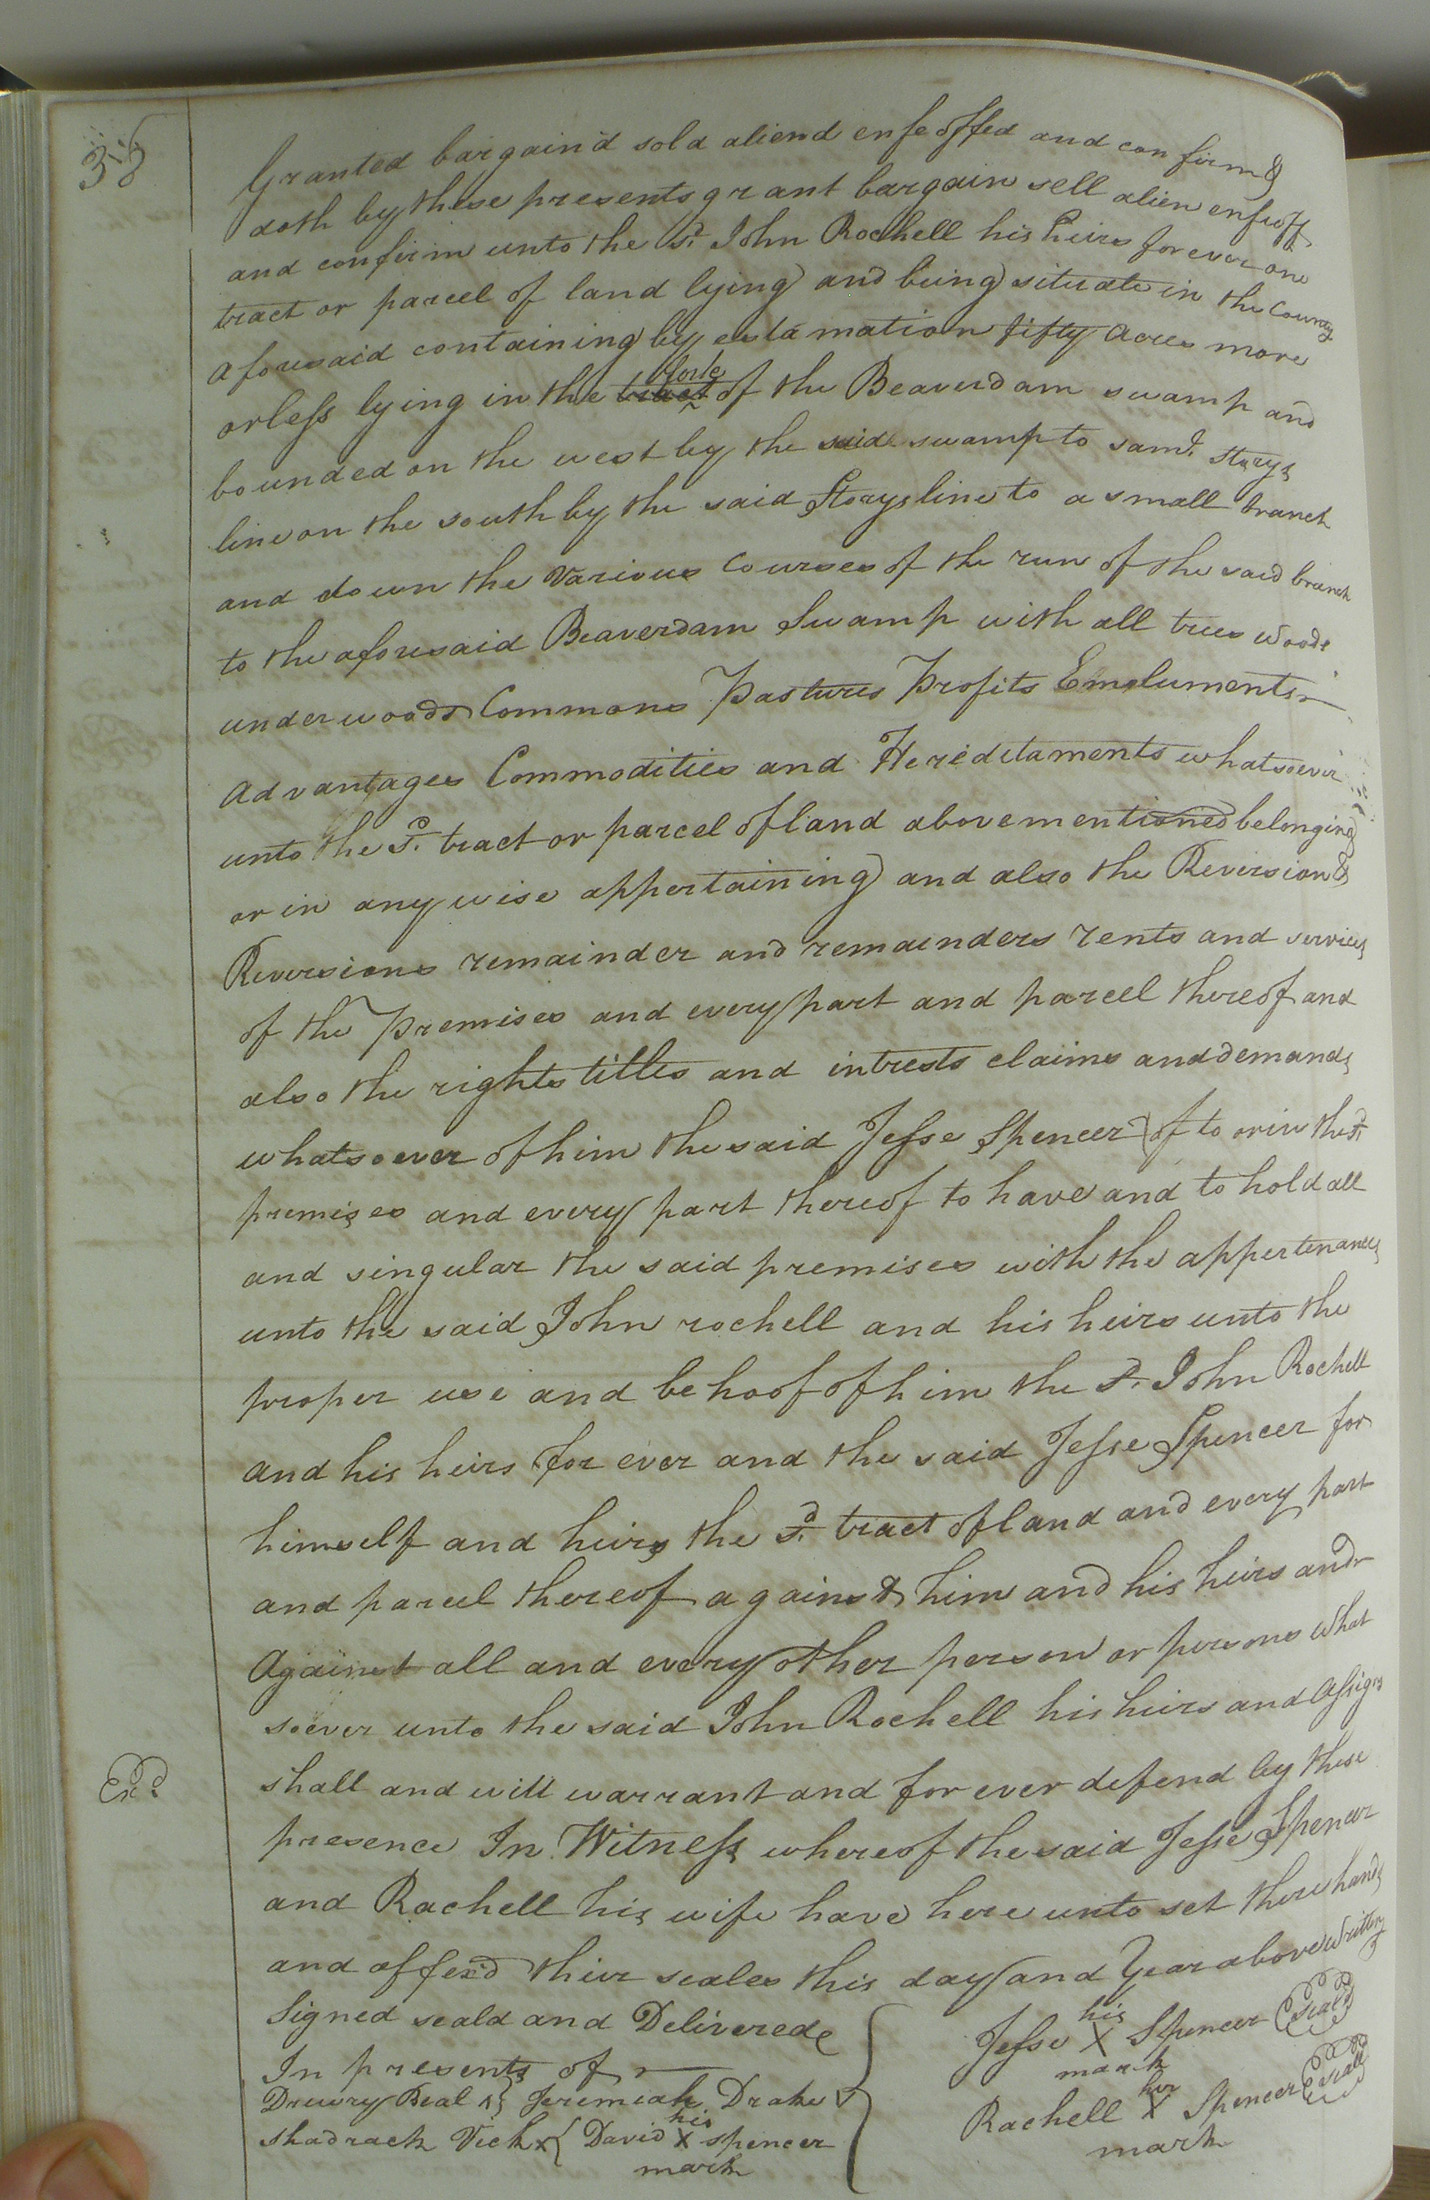 38
Granted bargain'd sold aliend enfeoffed and confirm &
doth by these presents grant bargain sell alien enfeoff
and confirm unto the sd. John Rochell his heirs forever one
tract or parcel of land lying and being situate in the County
aforesaid containing by estamation fifty acres more
or less lying in the tract fork of the Beaverdam swamp and
bounded on the west by the said swamp to saml. Storys
line on the south by the said Storys line to a small branch
and down the various courses of the run of the said branch
to the aforesaid Beaverdam Swamp with all trees woods
underwoods Commons Pastures Profits Emoluments
advantages Commodities and Hereditaments whatsoever
unto the sd. tract or parcel of land above mentioned belonging
or in any wise appertaining and also the Reversion &
Reversions remainder and remainders rents and services
of the Premises and every part and parcel thereof and
also the rights titles and intrests claims and demands
whatsoever of him the said Jesse Spencer of to or in the sd.
premises and every part thereof to have and to hold all
and singular the said premises with the appertenances
unto the said John rochell and his heirs unto the
proper use and behoof of him the sd. John Rochell
and his heirs for ever and the said Jesse Spencer for
himself and heirs the sd. tract of land and every part
and parcel thereof against him and his heirs and
Against all and every other person or persons what
soever unto the said John Rochell his heirs and assigns
shall and will warrant and for ever defend by these
Exd.
presence In Witness whereof the said Jesse Spencer
and Rachell his wife have here unto set there hands
and affex'd their seales this day and Year above written
Signed seald and Delivered
In presents of
Jesse his X mark Spencer seal'd
Drewry Beal Jeremiah Drake
Shadrack Vick x David his X mark spencer
Rachell her X mark Spencer seall